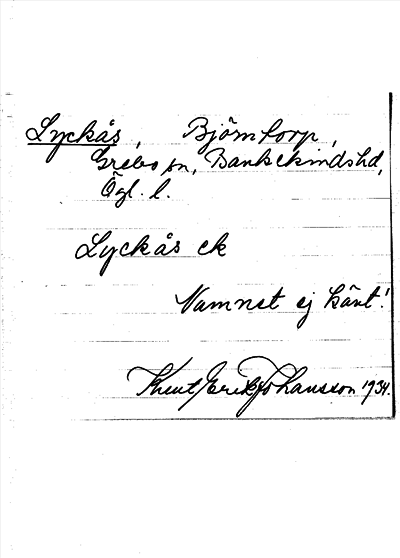 Lyckås, Björntorp,
Grebo sn, Bankekindshd,
Ögl. l.
Lyckås ek
Namnet ej känt!
Knut Erik Johansson 1934.